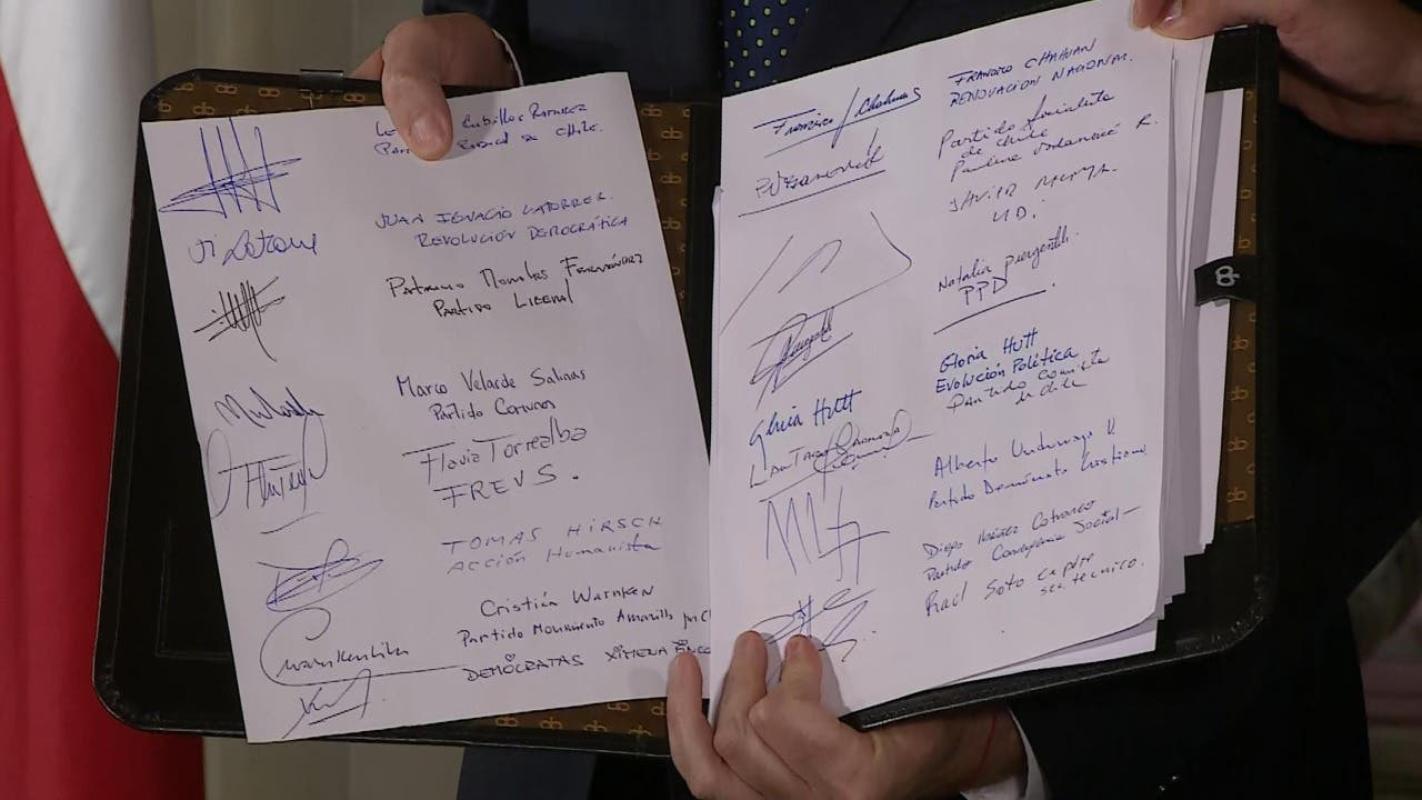 Cubillos Ramirez
Radical de Chile.
JUAN IGNACIO LATORRE R.
REVOLUCIÓN DEMOCRÁTICA
Patricio Morales Fernández
PARTIDO LIBERAL
Marco Velarde Salinas
Partido Comunes
Flavia Torrealba
FREVS.
TOMAS HIRSCH
ACCIÓN Humanista
Cristián Warnken
Partido Movimiento Amarillos
DEMÓCRATAS XIMENA
Francisco Chahuan
FRANCISCO CHAHUAN
RENOVACION NACIONAL.
Partido Socialista
de Chile
Paulina Vodanovic R.
P Vodanovic
JAVIER MACAYA.
UDI.
Natalia Piergentili.
PPD
Gloria Hutt
Evolución Política
Gloria Hutt
Partido Comunista
de Chile
Lautaro Carmona
Alberto Undurraga V
Partido Demócrata Cristiano
Diego Ibáñez Cotroneo
Partido Convergencia Social
Raúl Soto
sec. tecnico.